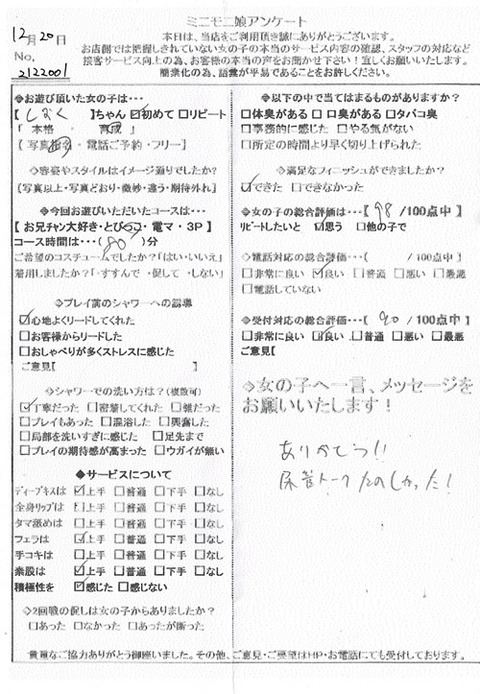 ミニモニ娘アンケート
12月20日
No. 2122001
本日は、当店をご利用頂き誠にありがとうございます。
お店側では把握しきれていない女の子の本当のサービス内容の確認、スタッフの対応など
接客サービス向上の為、お客様の本当の声をお聞かせ下さい！宜しくお願いいたします。
簡素化の為、語彙が平易であることをお許しください。
◆お遊び頂いた女の子は・・・
【しおく】ちゃん ☑初めて □リピート
「 本格 ・ 育成 」
[ 写真指名 ・ 電話ご予約 ・ フリー ]
◇容姿やスタイルはイメージ通りでしたか？
[写真以上・写真どおり・微妙・違う・期待外れ]
◆今回お遊びいただいたコースは・・・
【お兄チャン大好き・とびっこ・電マ・3P】
コース時間は・・・( 80 )分
ご希望のコスチュームでしたか？「はい・いいえ」
着用しましたか？「すすんで ・促して ・しない」
◇プレイ前のシャワーへの誘導
☑心地よくリードしてくれた
□お客様からリードした
□おしゃべりが多くストレスに感じた
ご意見[ ]
◇シャワーでの洗い方は？(複数可)
☑丁寧だった □密着してくれた □雑だった
□プレイもあった □混浴した □興奮した
□局部を洗いすぎに感じた □足先まで
□プレイの期待感が高まった □ウガイが無い
◆サービスについて
ディープキスは ☑上手 □普通 □下手 □なし
全身リップは □上手 □普通 □下手 □なし
タマ舐めは □上手 □普通 □下手 □なし
フェラは ☑上手 □普通 □下手 □なし
手コキは □上手 □普通 □下手 □なし
素股は ☑上手 □普通 □下手 □なし
積極性を ☑感じた □感じない
◇2回戦の促しは女の子からありましたか？
□あった □なかった □あったが断った
◆以下の中で当てはまるものがありますか？
□体臭がある □口臭がある □タバコ臭
□事務的に感じた □やる気がない
□所定の時間より早く切り上げられた
◇満足なフィニッシュができましたか？
☑できた □できなかった
◆女の子の総合評価は・・・【 98 /100点中】
リピートしたいと ☑思う □他の子で
◇電話対応の総合評価・・・( /100点中)
□非常に良い ☑良い □普通 □悪い □最悪
□電話していない
◆受付対応の総合評価・・・( 90 /100点中)
□非常に良い ☑良い □普通 □悪い □最悪
ご意見[ ]
◇女の子へ一言、メッセージを
お願いいたします！
ありがとう！！
トーク たのしかった！
貴重なご協力ありがとう御座いました。その他、ご意見・ご要望はHP・お電話にても受付しております。